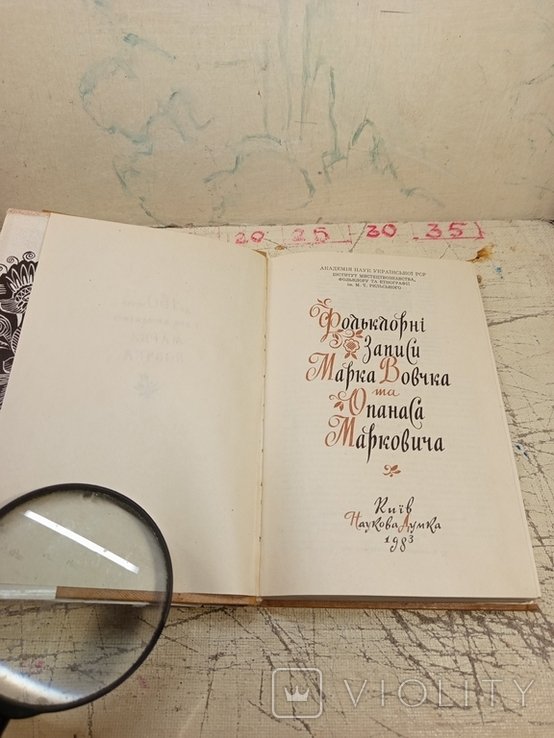 20 25 30 35
АКАДЕМІЯ НАУК УКРАЇНСЬКОЇ РСР
ІНСТИТУТ МИСТЕЦТВОЗНАВСТВА,
ФОЛЬКЛОРУ ТА ЕТНОГРАФІЇ
ім. М. Т. РИЛЬСЬКОГО
Фольклорні
Записи
Марка Вовчка
та
Опанаса
Марковича
Київ
Наукова Думка
1983
VIOLITY